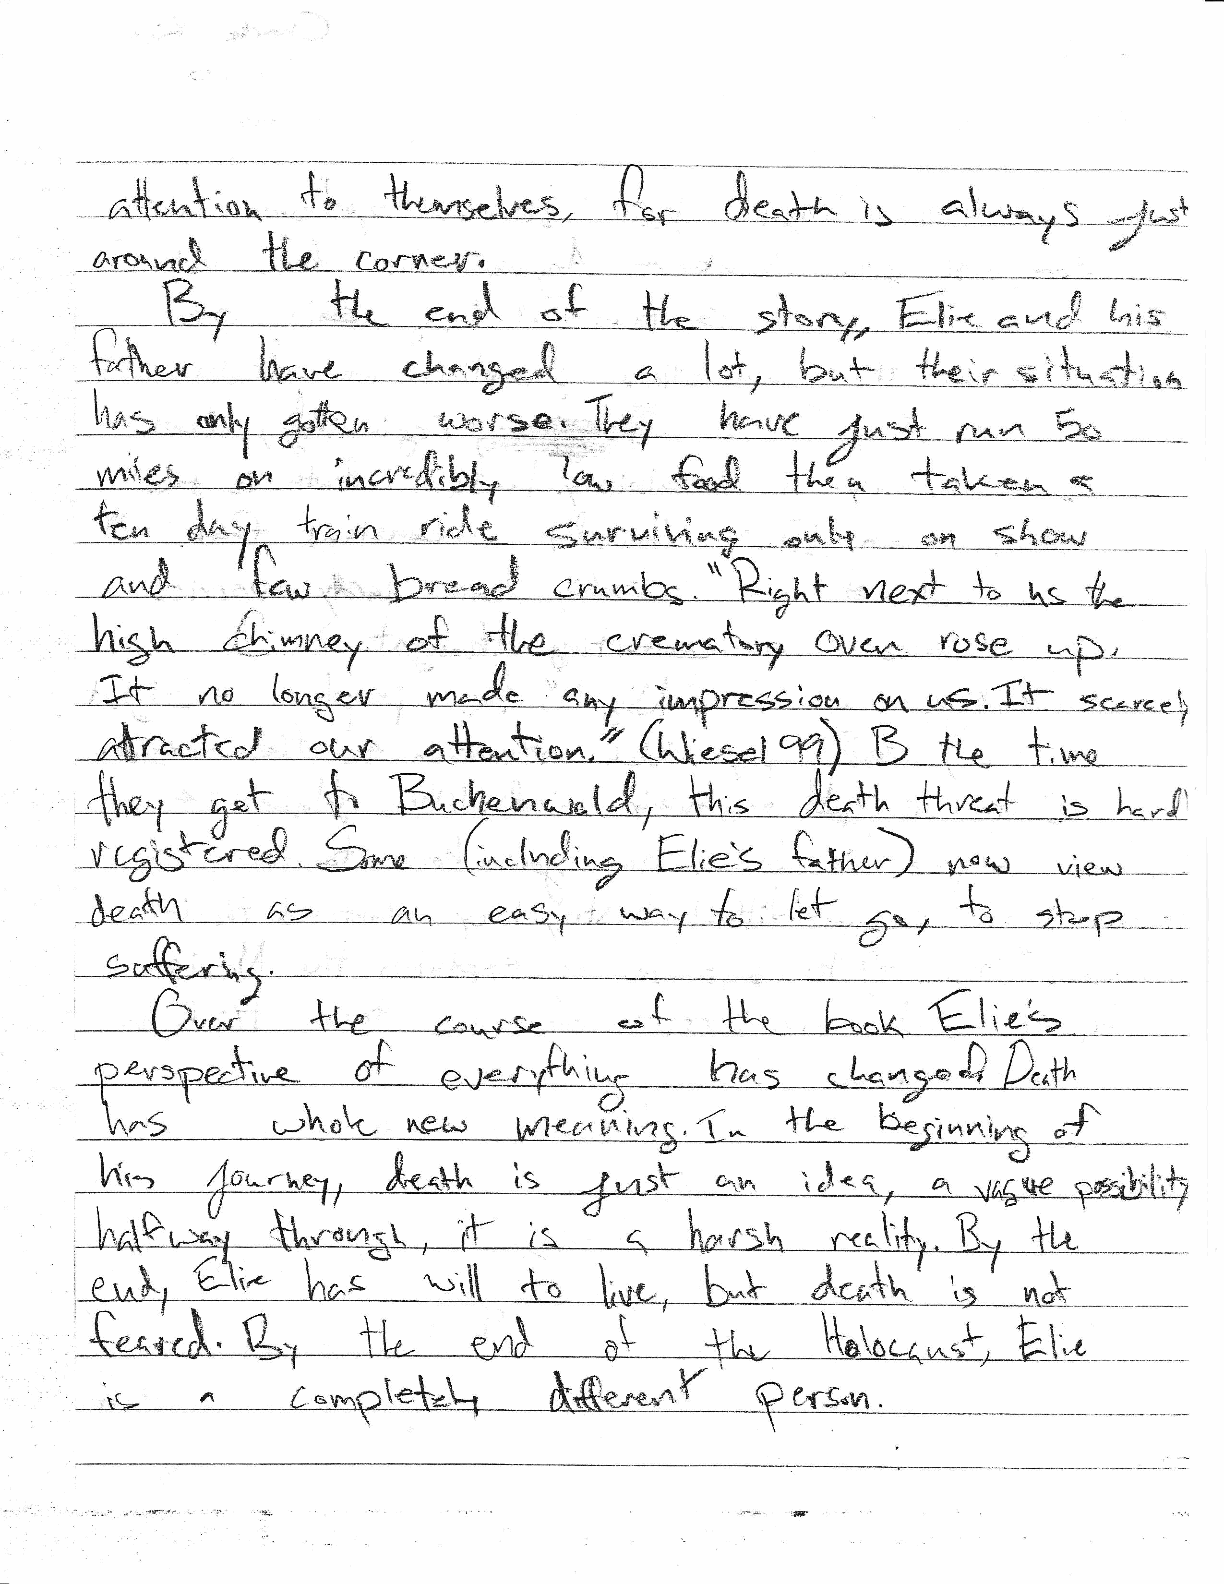 attention to themselves, for death is always just
around the corner.
By the end of the story, Elie and his
father have changed a lot, but their situation
has only gotten worse. They have just run 50
miles on incredibly low food then taken a
ten day train ride surviving only on show
and few bread crumbs. "Right next to us the
high chimney of the crematory oven rose up.
It no longer made any impression on us. It scarcely
attracted our attention." (Wiesel 99) B the time
they get to Buchenwald, this death threat is hard
registered. Some (including Elie's father) now view
death as an easy way to let go, to stop
suffering.
Over the course of the book Elie's
perspective of everything has changed. Death
has whole new meaning. In the beginning of
his journey, death is just an idea, a vague possibility
halfway through, it is a harsh reality. By the
end, Elie has will to live, but death is not
feared. By the end of the Holocaust, Elie
is a completely different person.